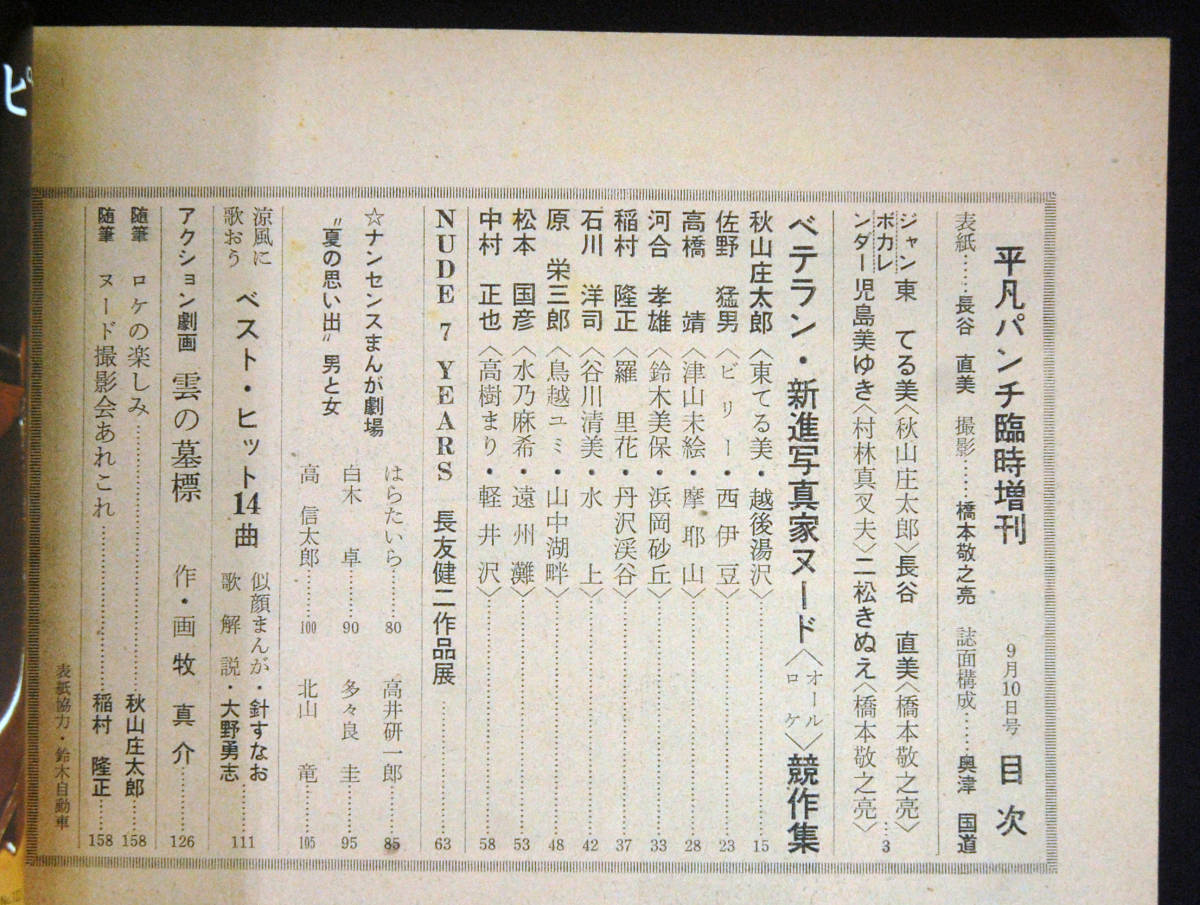 平凡パンチ臨時増刊 9月10日号 目次
表紙……長谷 直美 撮影……橋本敬之亮 誌面構成……奥津 国道
ジャンボカレンダー
東 てる美〈秋山庄太郎〉長谷 直美〈橋本敬之亮〉
児島美ゆき〈村林真叉夫〉二松きぬえ〈橋本敬之亮〉…3
ベテラン・新進写真家ヌード〈オールロケ〉競作集
秋山庄太郎〈東てる美・越後湯沢〉……15
佐野 猛男〈ビリー・西伊豆〉……23
高橋 靖〈津山未絵・摩耶山〉……28
河合 孝雄〈鈴木美保・浜岡砂丘〉……33
稲村 隆正〈羅 里花・丹沢渓谷〉……37
石川 洋司〈谷川清美・水上〉……42
原 栄三郎〈鳥越ユミ・山中湖畔〉……48
松本 国彦〈水乃麻希・遠州灘〉……53
中村 正也〈高樹まり・軽井沢〉……58
NUDE 7 YEARS 長友健二作品展……63
☆ナンセンスまんが劇場
“夏の思い出”男と女
はらたいら……80 高井研一郎……85
白木 卓……90 多々良 圭……95
高 信太郎……100 北山 竜……105
涼風に歌おう ベスト・ヒット14曲
似顔まんが・針すなお
歌解説・大野勇志……111
アクション劇画 雲の墓標 作・画 牧 真介……126
随筆 ロケの楽しみ……秋山庄太郎……158
随筆 ヌード撮影会あれこれ……稲村 隆正……158
表紙協力・鈴木自動車
ピ